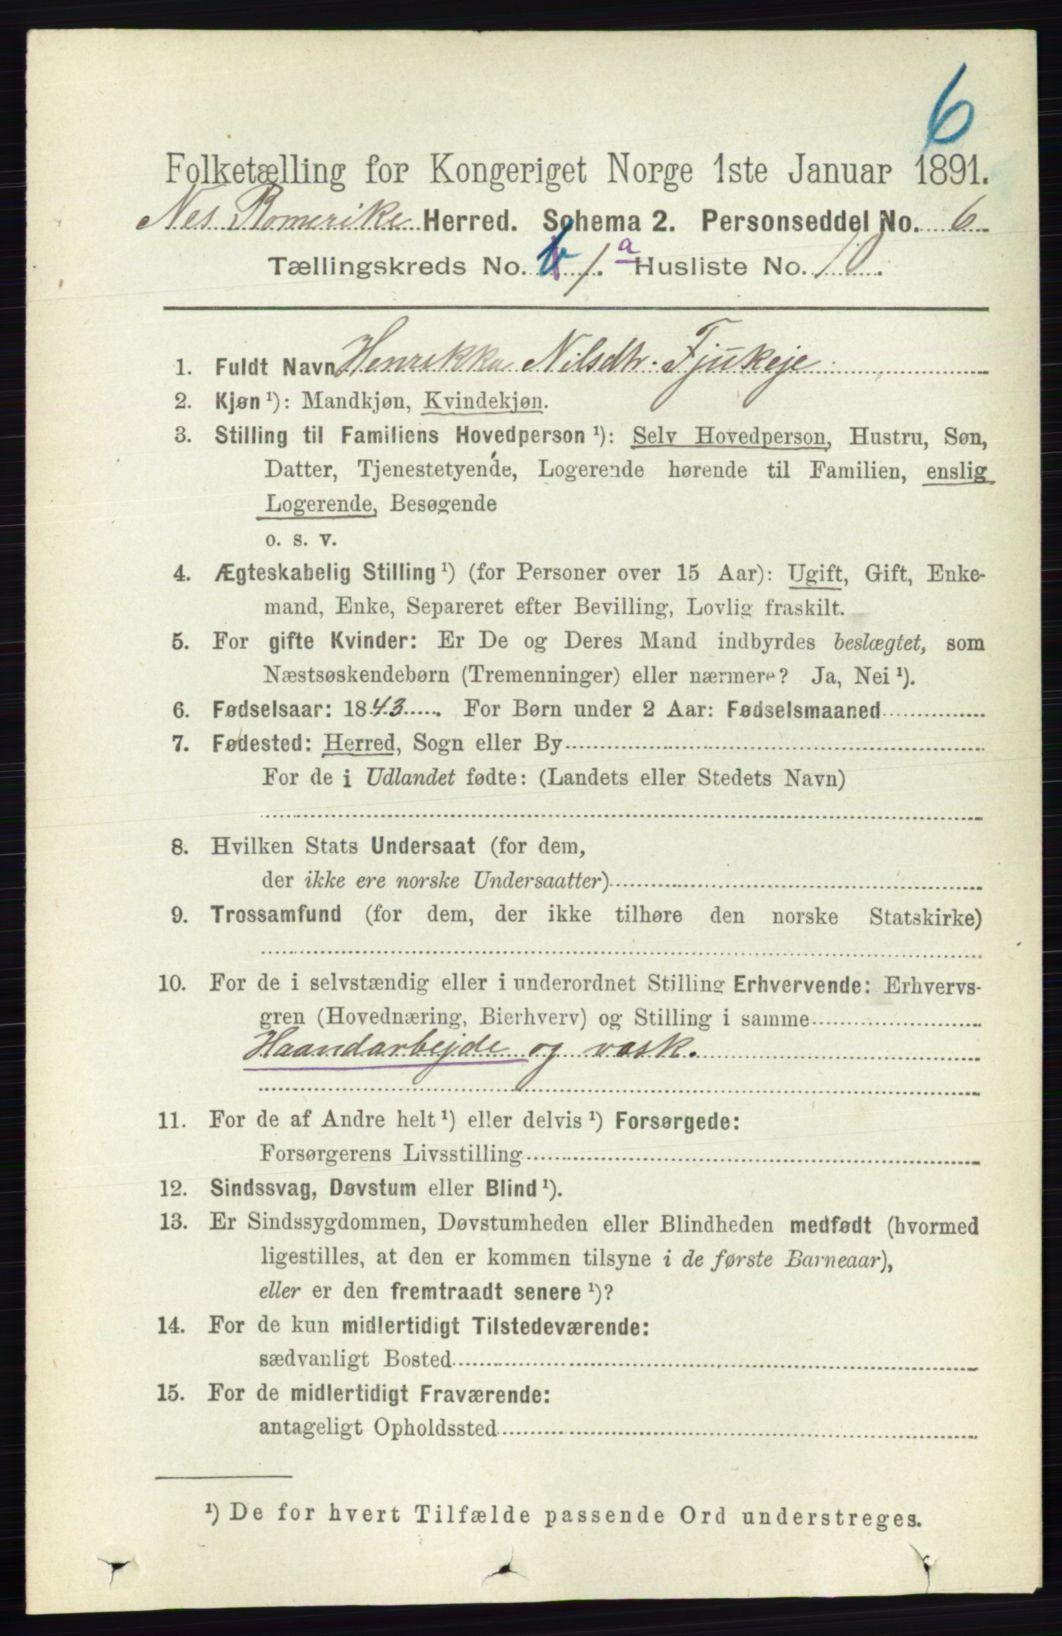 6
Folketælling for Kongeriget Norge 1ste Januar 1891.
Nes Romerike Herred. Schema 2. Personseddel No. 6
Tællingskreds No. 1. a Husliste No. 10.
1. Fuldt Navn Henrikka Nilsdtr. Fjukeje
2. Kjøn ¹): Mandkjøn, Kvindekjøn.
3. Stilling til Familiens Hovedperson ¹): Selv Hovedperson, Hustru, Søn,
Datter, Tjenestetyende, Logerende hørende til Familien, enslig
Logerende, Besøgende
o. s. v.
4. Ægteskabelig Stilling ¹) (for Personer over 15 Aar): Ugift, Gift, Enke-
mand, Enke, Separeret efter Bevilling, Lovlig fraskilt.
5. For gifte Kvinder: Er De og Deres Mand indbyrdes beslægtet, som
Næstsøskendebørn (Tremenninger) eller nærmere? Ja, Nei ¹).
6. Fødselsaar: 1843. For Børn under 2 Aar: Fødselsmaaned
7. Fødested: Herred, Sogn eller By
For de i Udlandet fødte: (Landets eller Stedets Navn)
8. Hvilken Stats Undersaat (for dem,
der ikke ere norske Undersaatter)
9. Trossamfund (for dem, der ikke tilhøre den norske Statskirke)
10. For de i selvstændig eller i underordnet Stilling Erhvervende: Erhvervs-
gren (Hovednæring, Bierhverv) og Stilling i samme
Haandarbejde og vask.
11. For de af Andre helt ¹) eller delvis ¹) Forsørgede:
Forsørgerens Livsstilling
12. Sindssvag, Døvstum eller Blind ¹).
13. Er Sindssygdommen, Døvstumheden eller Blindheden medfødt (hvormed
ligestilles, at den er kommen tilsyne i de første Barneaar),
eller er den fremtraadt senere ¹)?
14. For de kun midlertidigt Tilstedeværende:
sædvanligt Bosted
15. For de midlertidigt Fraværende:
antageligt Opholdssted
¹) De for hvert Tilfælde passende Ord understreges.